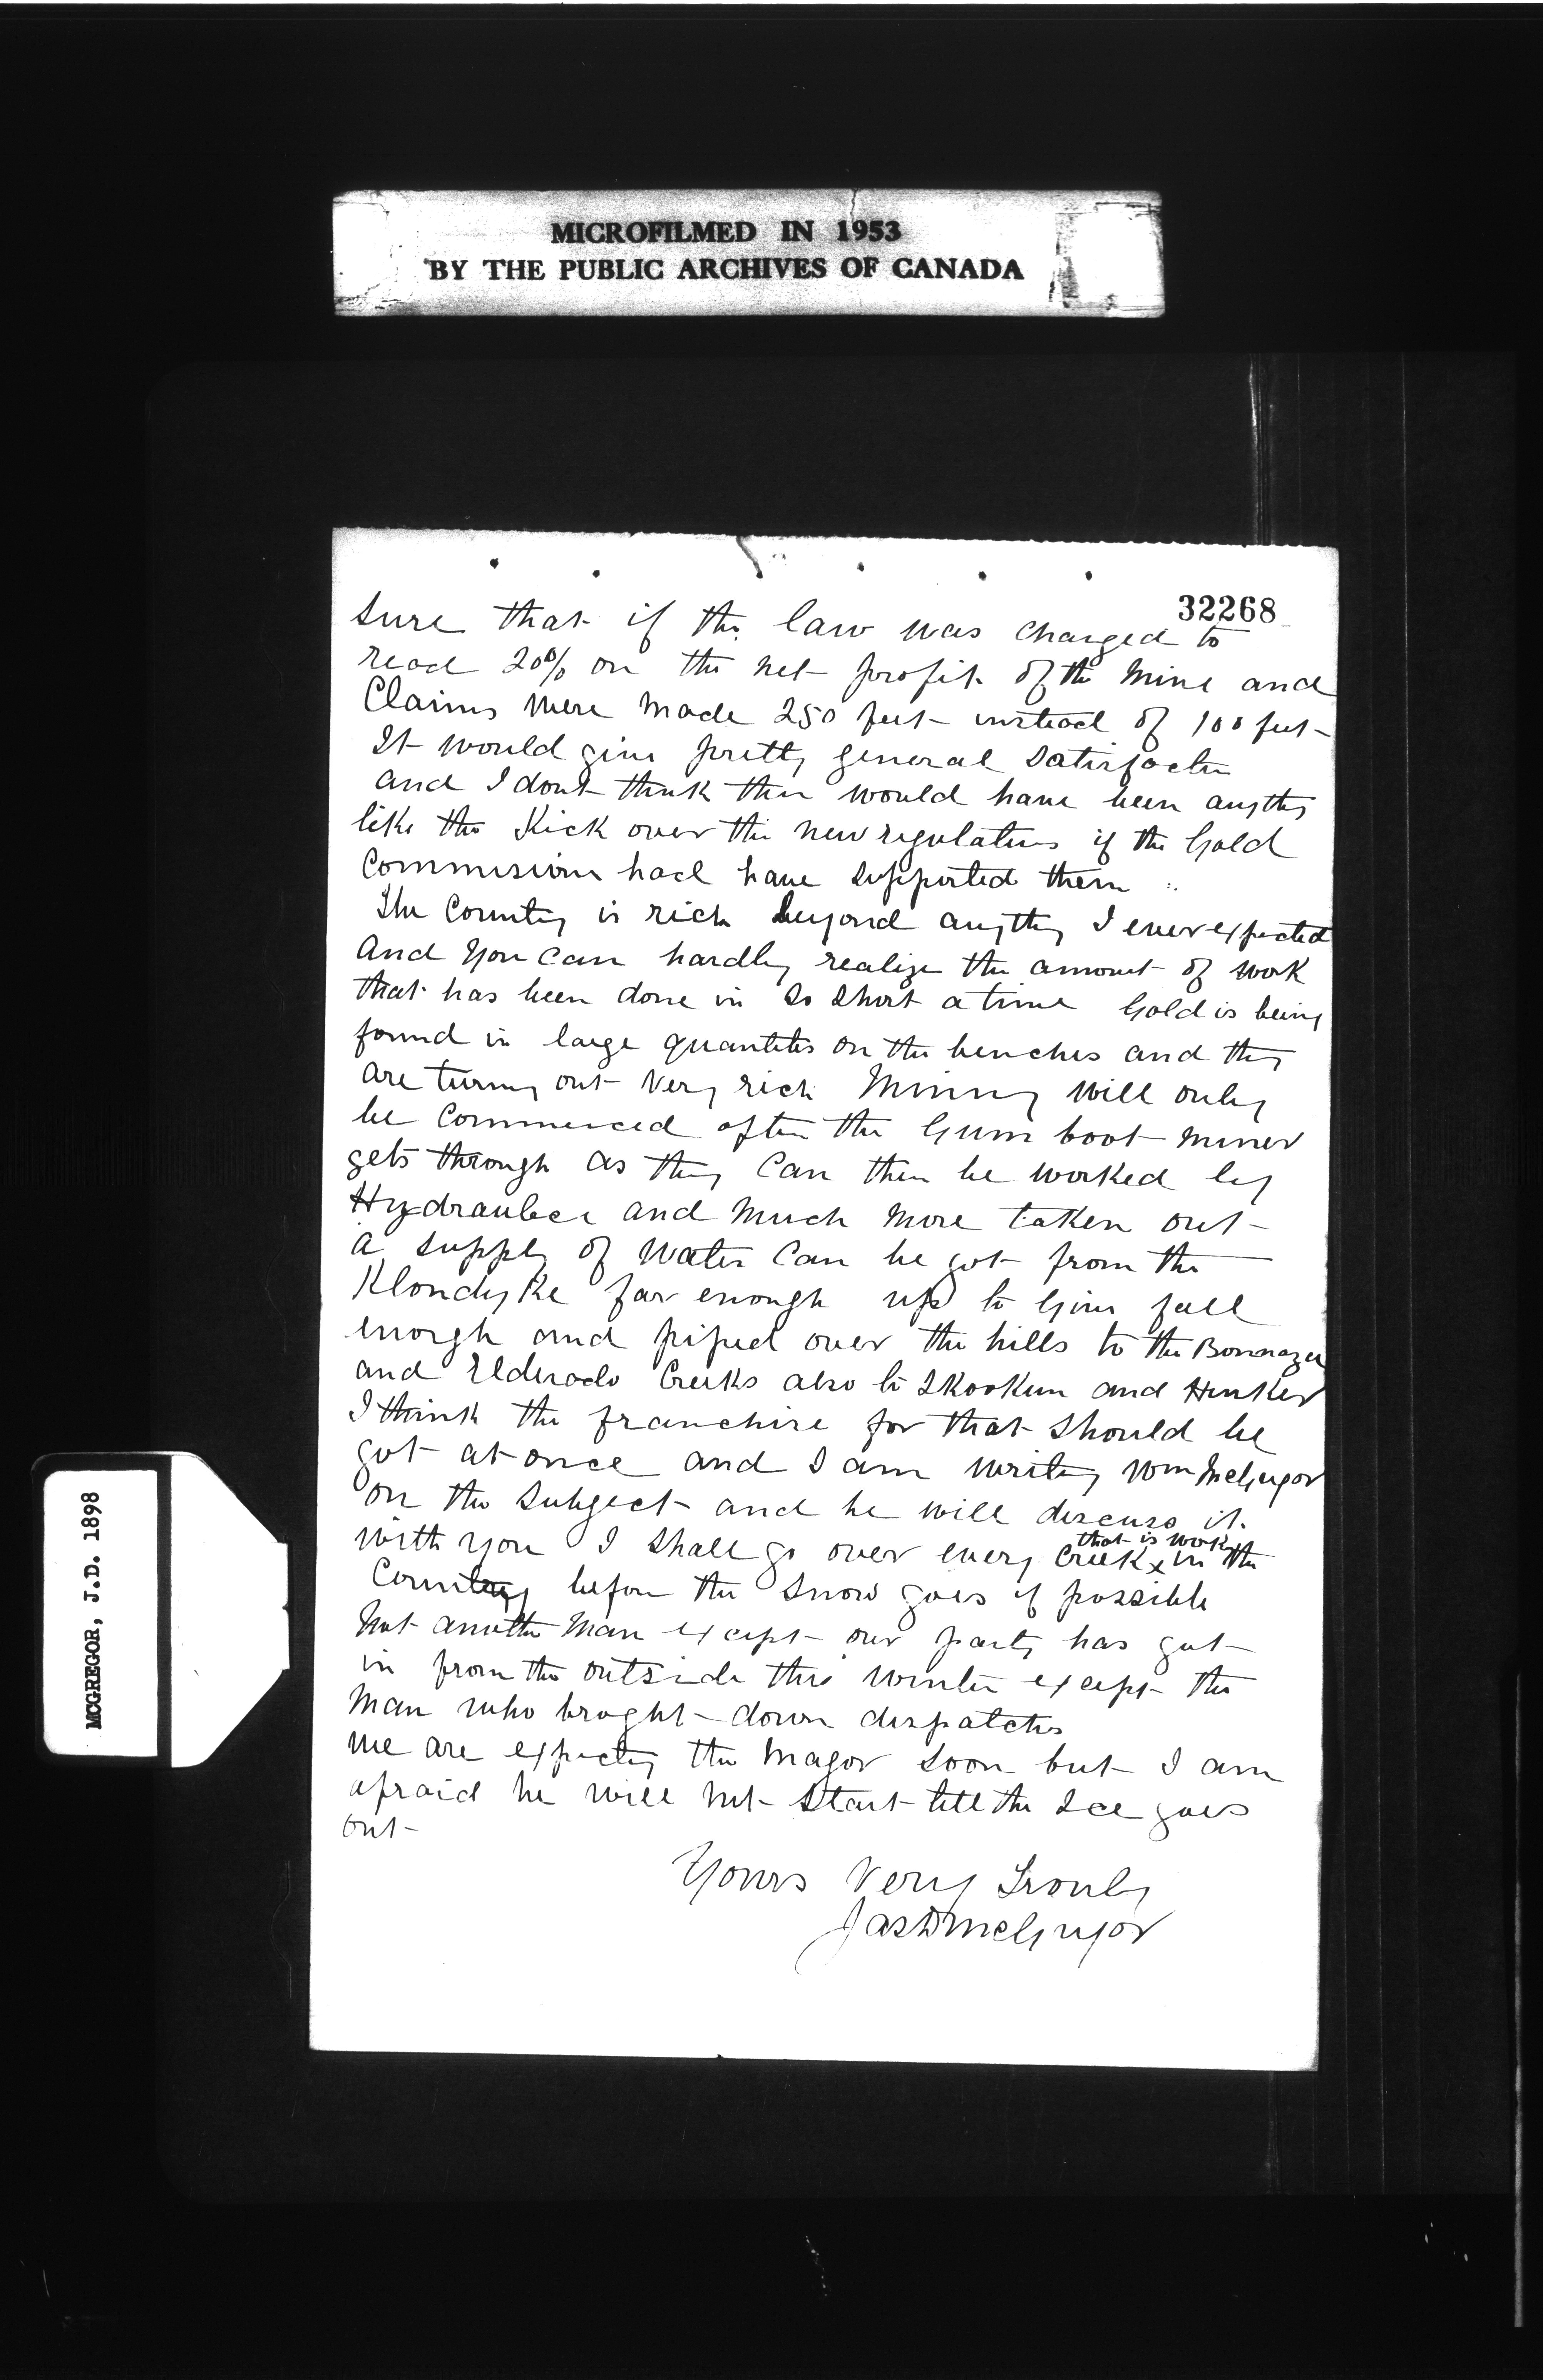 MICROFILMED IN 1953
BY THE PUBLIC ARCHIVES OF CANADA
32268
Sure that if the law was changed to
read 20% on the net profit of the Mine and
Claims were made 250 feet instead of 100 feet
It would give pretty general Satisfaction
and I dont think there would have been anything
like the Kick over the new regulations if the Gold
Commisioner had have supported them
The Country is rich beyond anything I ever expected
And You Can hardly realize the amount of work
that has been done in So Short a time Gold is being
found in large quantities on the benches and they
are turning out Very rich Mining will only
be Commenced after the Gum boot miner
gets through as they Can then be worked by
Hydraulics and Much More taken out
a supply of Water Can be got from the
Klondyke far enough up to Give fall
enough and piped over the hills to the Bonnaza
and Elderado Creeks also to Skookum and Hunker
I think the franchise for that should be
got at once and I am writing Wm McGregor
on the Subject and he will discuss it
with you I Shall go over every Creek x that is work in the
Country before the Snow goes if possible
Not another Man except our party has got
in from the outside this winter except the
Man who broght down dispatches
We are expecting the Major soon but I am
afraid he will not Start till the Ice goes
out
Yours Very Trouly
Jas D McGregor
MCGREGOR, J.D. 1898